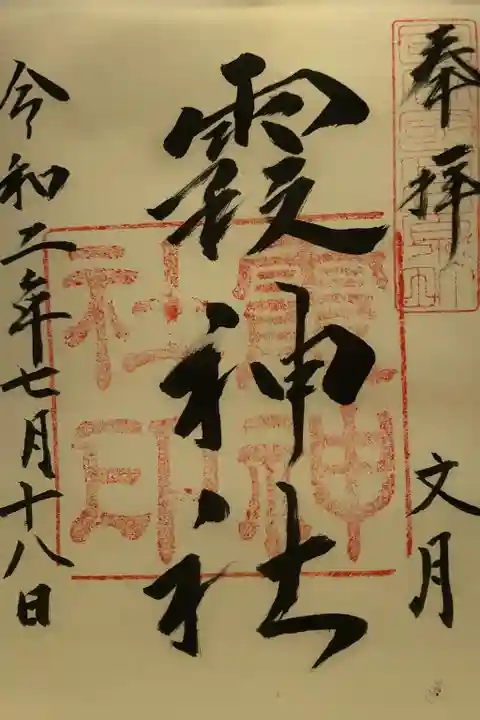 奉拝
文月
霞神社
令和二年七月十八日
霞神社印